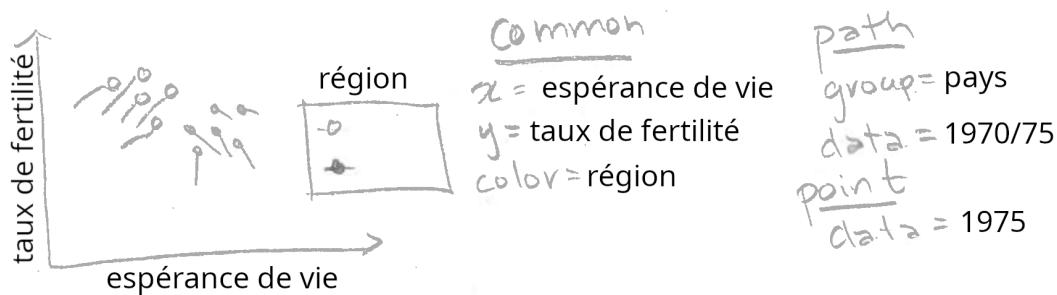 taux de fertilité
espérance de vie
région
Common
x = espérance de vie
y = taux de fertilité
color = région
path
group = pays
data = 1970/75
point
data = 1975